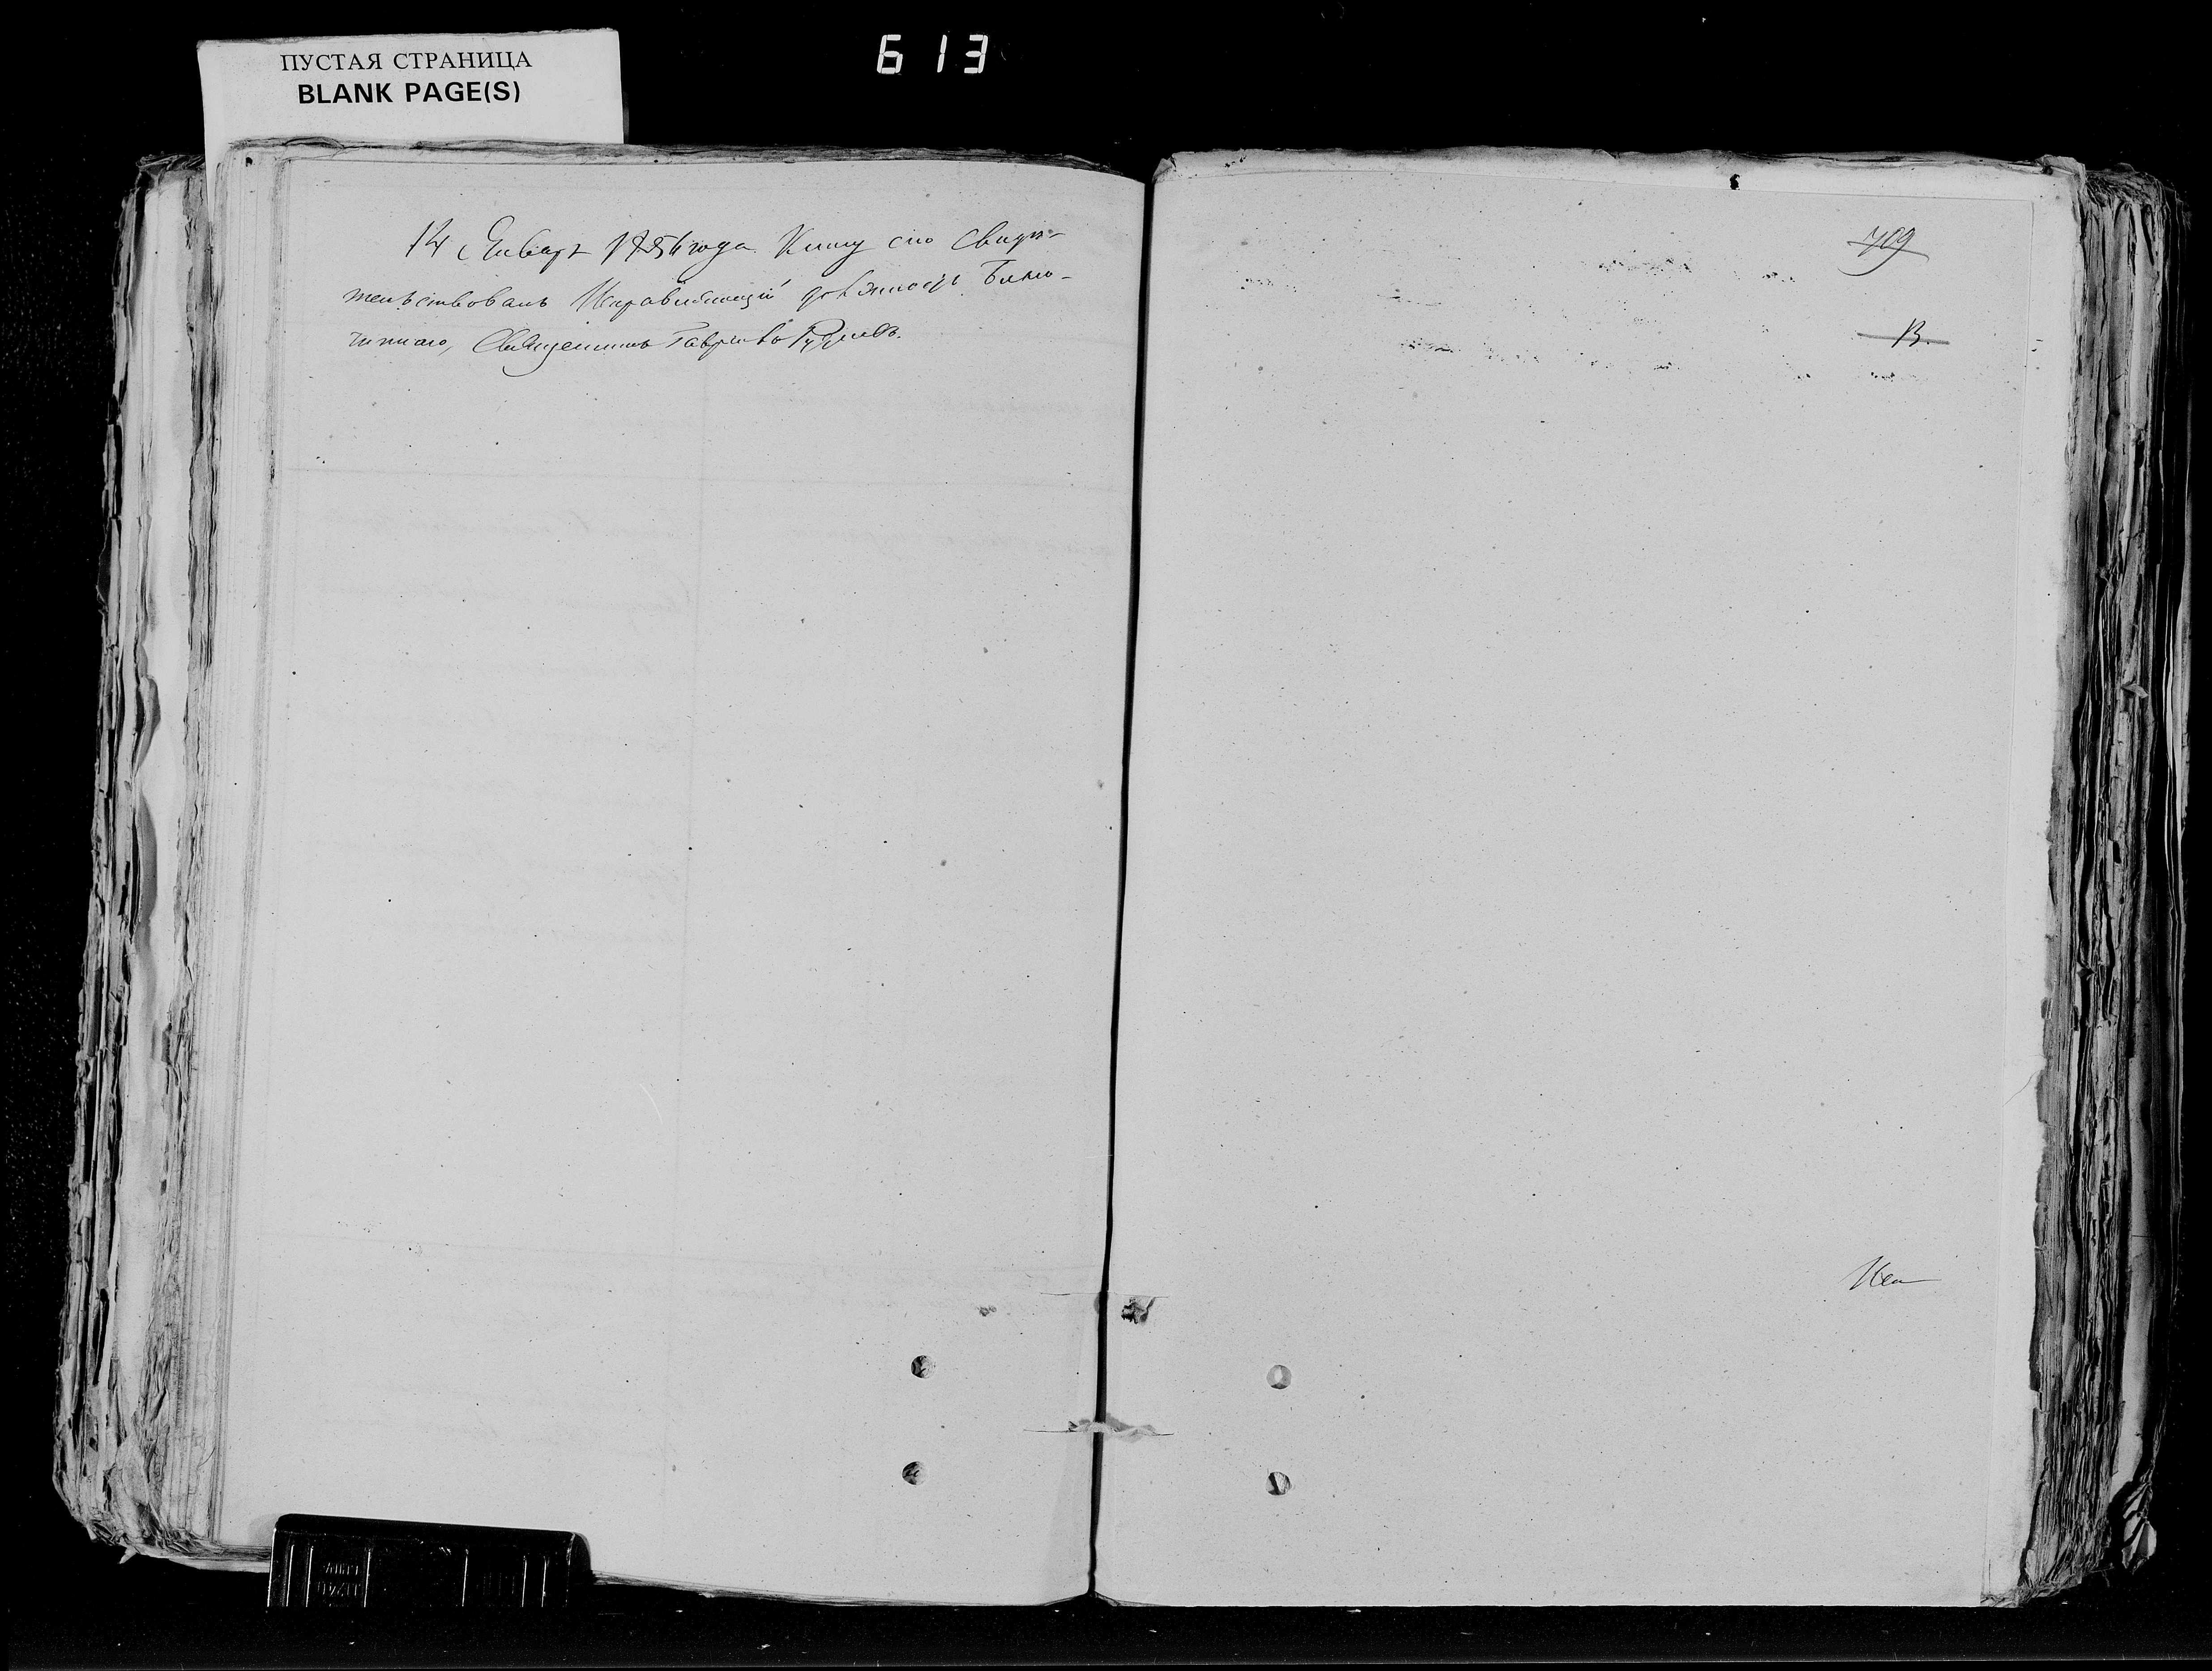 ПУСТАЯ СТРАНИЦА
BLANK PAGE(S)
613
14 Январь 1856 года Книгу сию свидѣ-
тельствовалъ Исправляющій должность Благо-
чиннаго, Священникъ Гавріилъ
709
13.